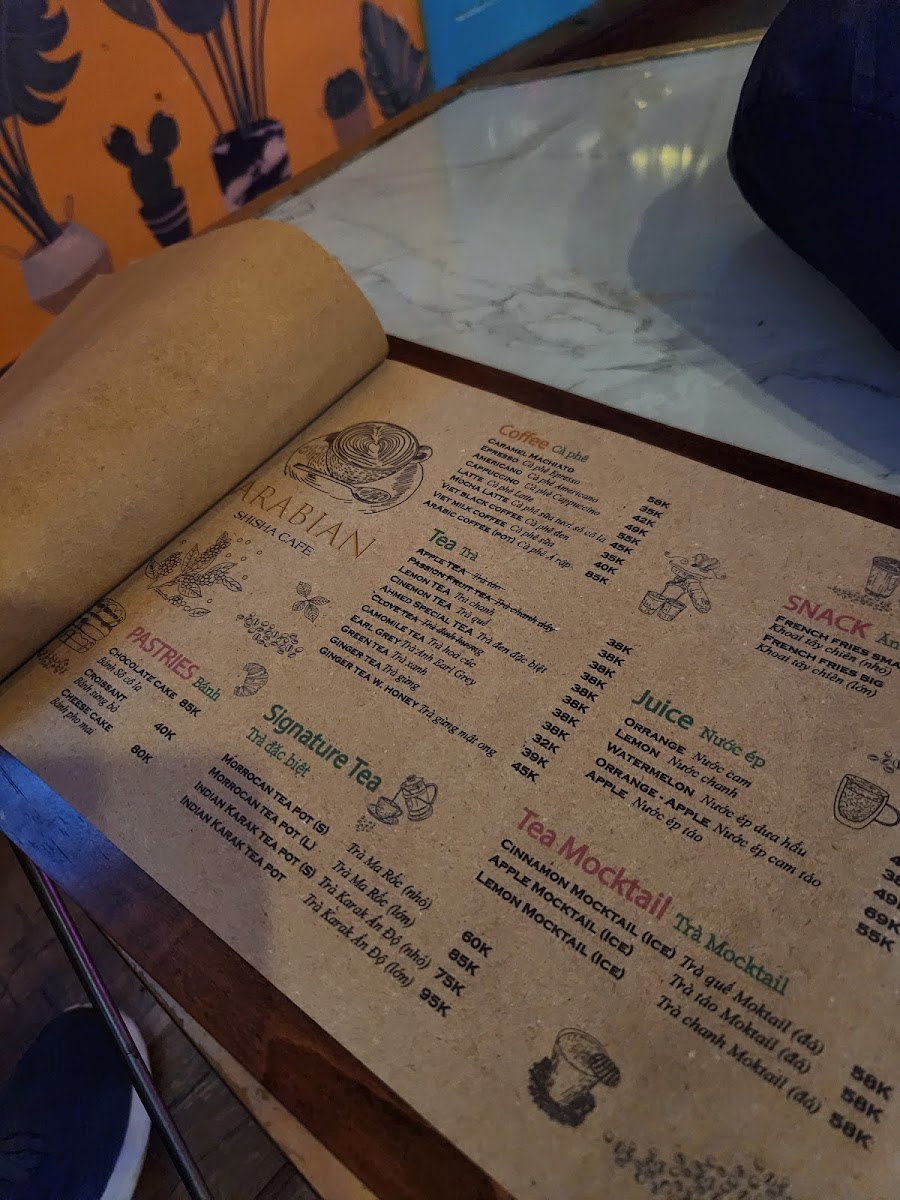 ARABIAN
SHISHA CAFE
PASTRIES Bánh
CHOCOLATE CAKE 85K
Bánh Sô cô la
CROISSANT 40K
Bánh sừng bò
CHEESE CAKE 80K
Bánh pho mai
Signature Tea
Trà đặc biệt
MORROCAN TEA POT (S) Trà Ma Rốc (nhỏ) 60K
MORROCAN TEA POT (L) Trà Ma Rốc (lớn) 85K
INDIAN KARAK TEA POT (S) Trà Karak Ấn Độ (nhỏ) 75K
INDIAN KARAK TEA POT Trà Karak Ấn Độ (lớn) 95K
Coffee Cà phê
CARAMEL MACHIATO 58K
EPRESSO Cà phê Epresso 35K
AMERICANO Cà phê Americano 42K
CAPPUCCINO Cà phê Cappuccino 49K
LATTE Cà phê Latte 55K
MOCHA LATTE Cà phê sữa tươi sô cô la 45K
VIET BLACK COFFEE Cà phê đen 35K
VIET MILK COFFEE Cà phê sữa 40K
ARABIC COFFEE (POT) Cà phê Ả rập 85K
Tea Trà
APPLE TEA Trà táo
PASSION FRUIT TEA Trà chanh dây
LEMON TEA Trà chanh 38K
CINEMON TEA Trà quế 38K
AHMED SPECIAL TEA Trà đen đặc biệt 38K
CLOVE TEA Trà đinh hương 38K
CAMOMILE TEA Trà hoa cúc 38K
EARL GREY Trà Anh Earl Grey 38K
GREEN TEA Trà xanh 32K
GINGER TEA Trà gừng 39K
GINGER TEA W. HONEY Trà gừng mật ong 45K
SNACK Ăn
FRENCH FRIES SMA
Khoai tây chiên (nhỏ)
FRENCH FRIES BIG
Khoai tây chiên (lớn)
Juice Nước ép
ORRANGE Nước cam
LEMON Nước chanh
WATERMELON Nước ép dưa hấu
ORRANGE - APPLE Nước ép cam táo 69K
APPLE Nước ép táo 55K
Tea Mocktail Trà Mocktail
CINNAMON MOCKTAIL (ICE) Trà quế Moktail (đá) 58K
APPLE MOCKTAIL (ICE) Trà táo Moktail (đá) 58K
LEMON MOCKTAIL (ICE) Trà chanh Moktail (đá) 58K